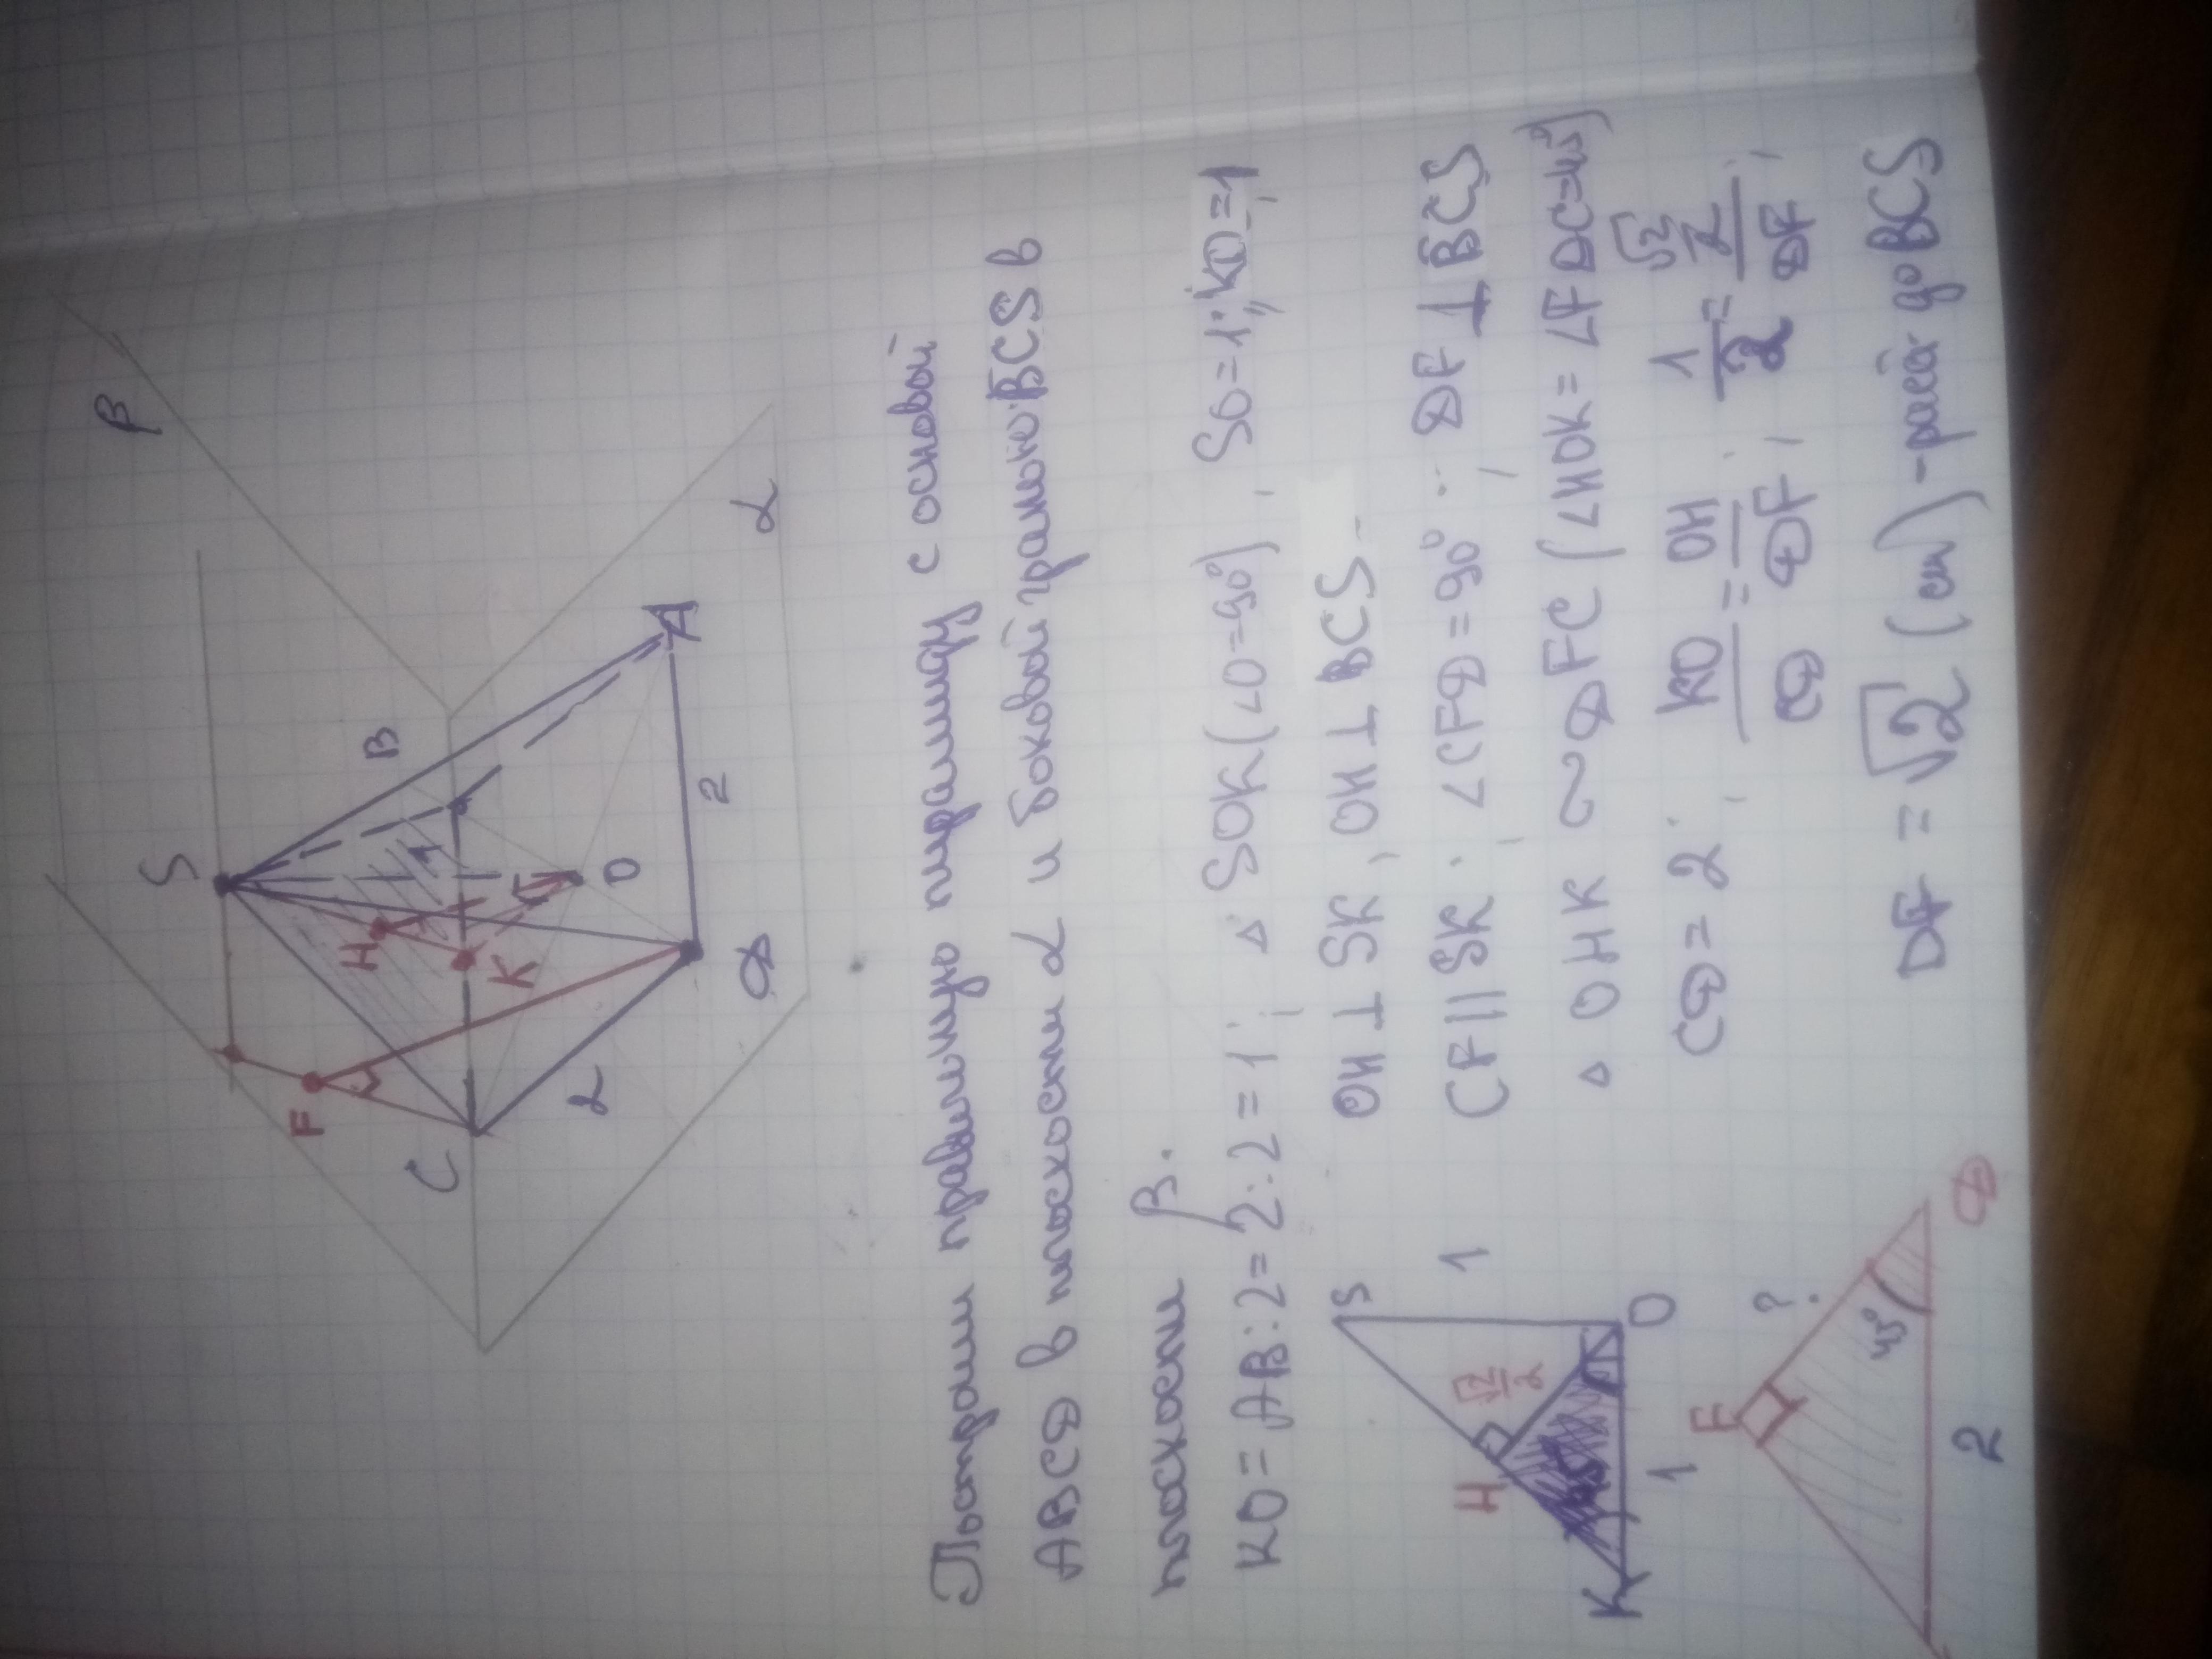 β
S
B
H
F
K
1
O
C
A
2
α
2
D
Построим правильную пирамиду с основой
ABCD в плоскости α и боковой гранью BCS в
плоскости β.
KO = AB:2 = 2:2 = 1; △ SOK (∠O=90°), SO=1; KO=1
OH ⊥ SK, OH ⊥ BCS
CF || SK; ∠CFD = 90°; DF ⊥ BCS
△ OHK ∼ DFC (∠HOK = ∠FDC=45°)
CD = 2; KO/CD = OH/DF; 1/2 = (√2/2)/DF;
DF = √2 (см) - расст до BCS
S
1
√2/2
H
O
K
1
F
?
45°
D
2